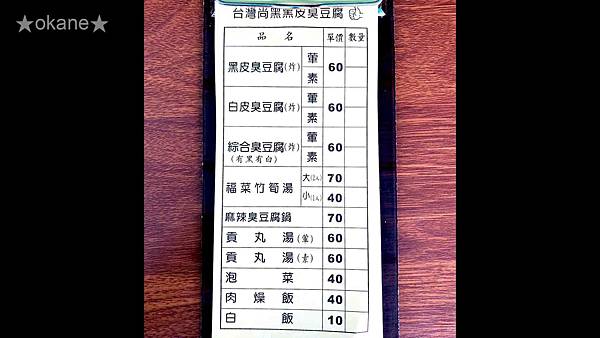 ★okane★
台灣尚黑黑皮臭豆腐
品名 單價 數量
黑皮臭豆腐(炸) 葷 素 60
白皮臭豆腐(炸) 葷 素 60
綜合臭豆腐(炸) 葷 素 60
(有黑有白)
福菜竹筍湯 大(2人) 70
小(1人) 40
麻辣臭豆腐鍋 70
貢丸湯(葷) 60
貢丸湯(素) 60
泡菜 40
肉燥飯 40
白飯 10